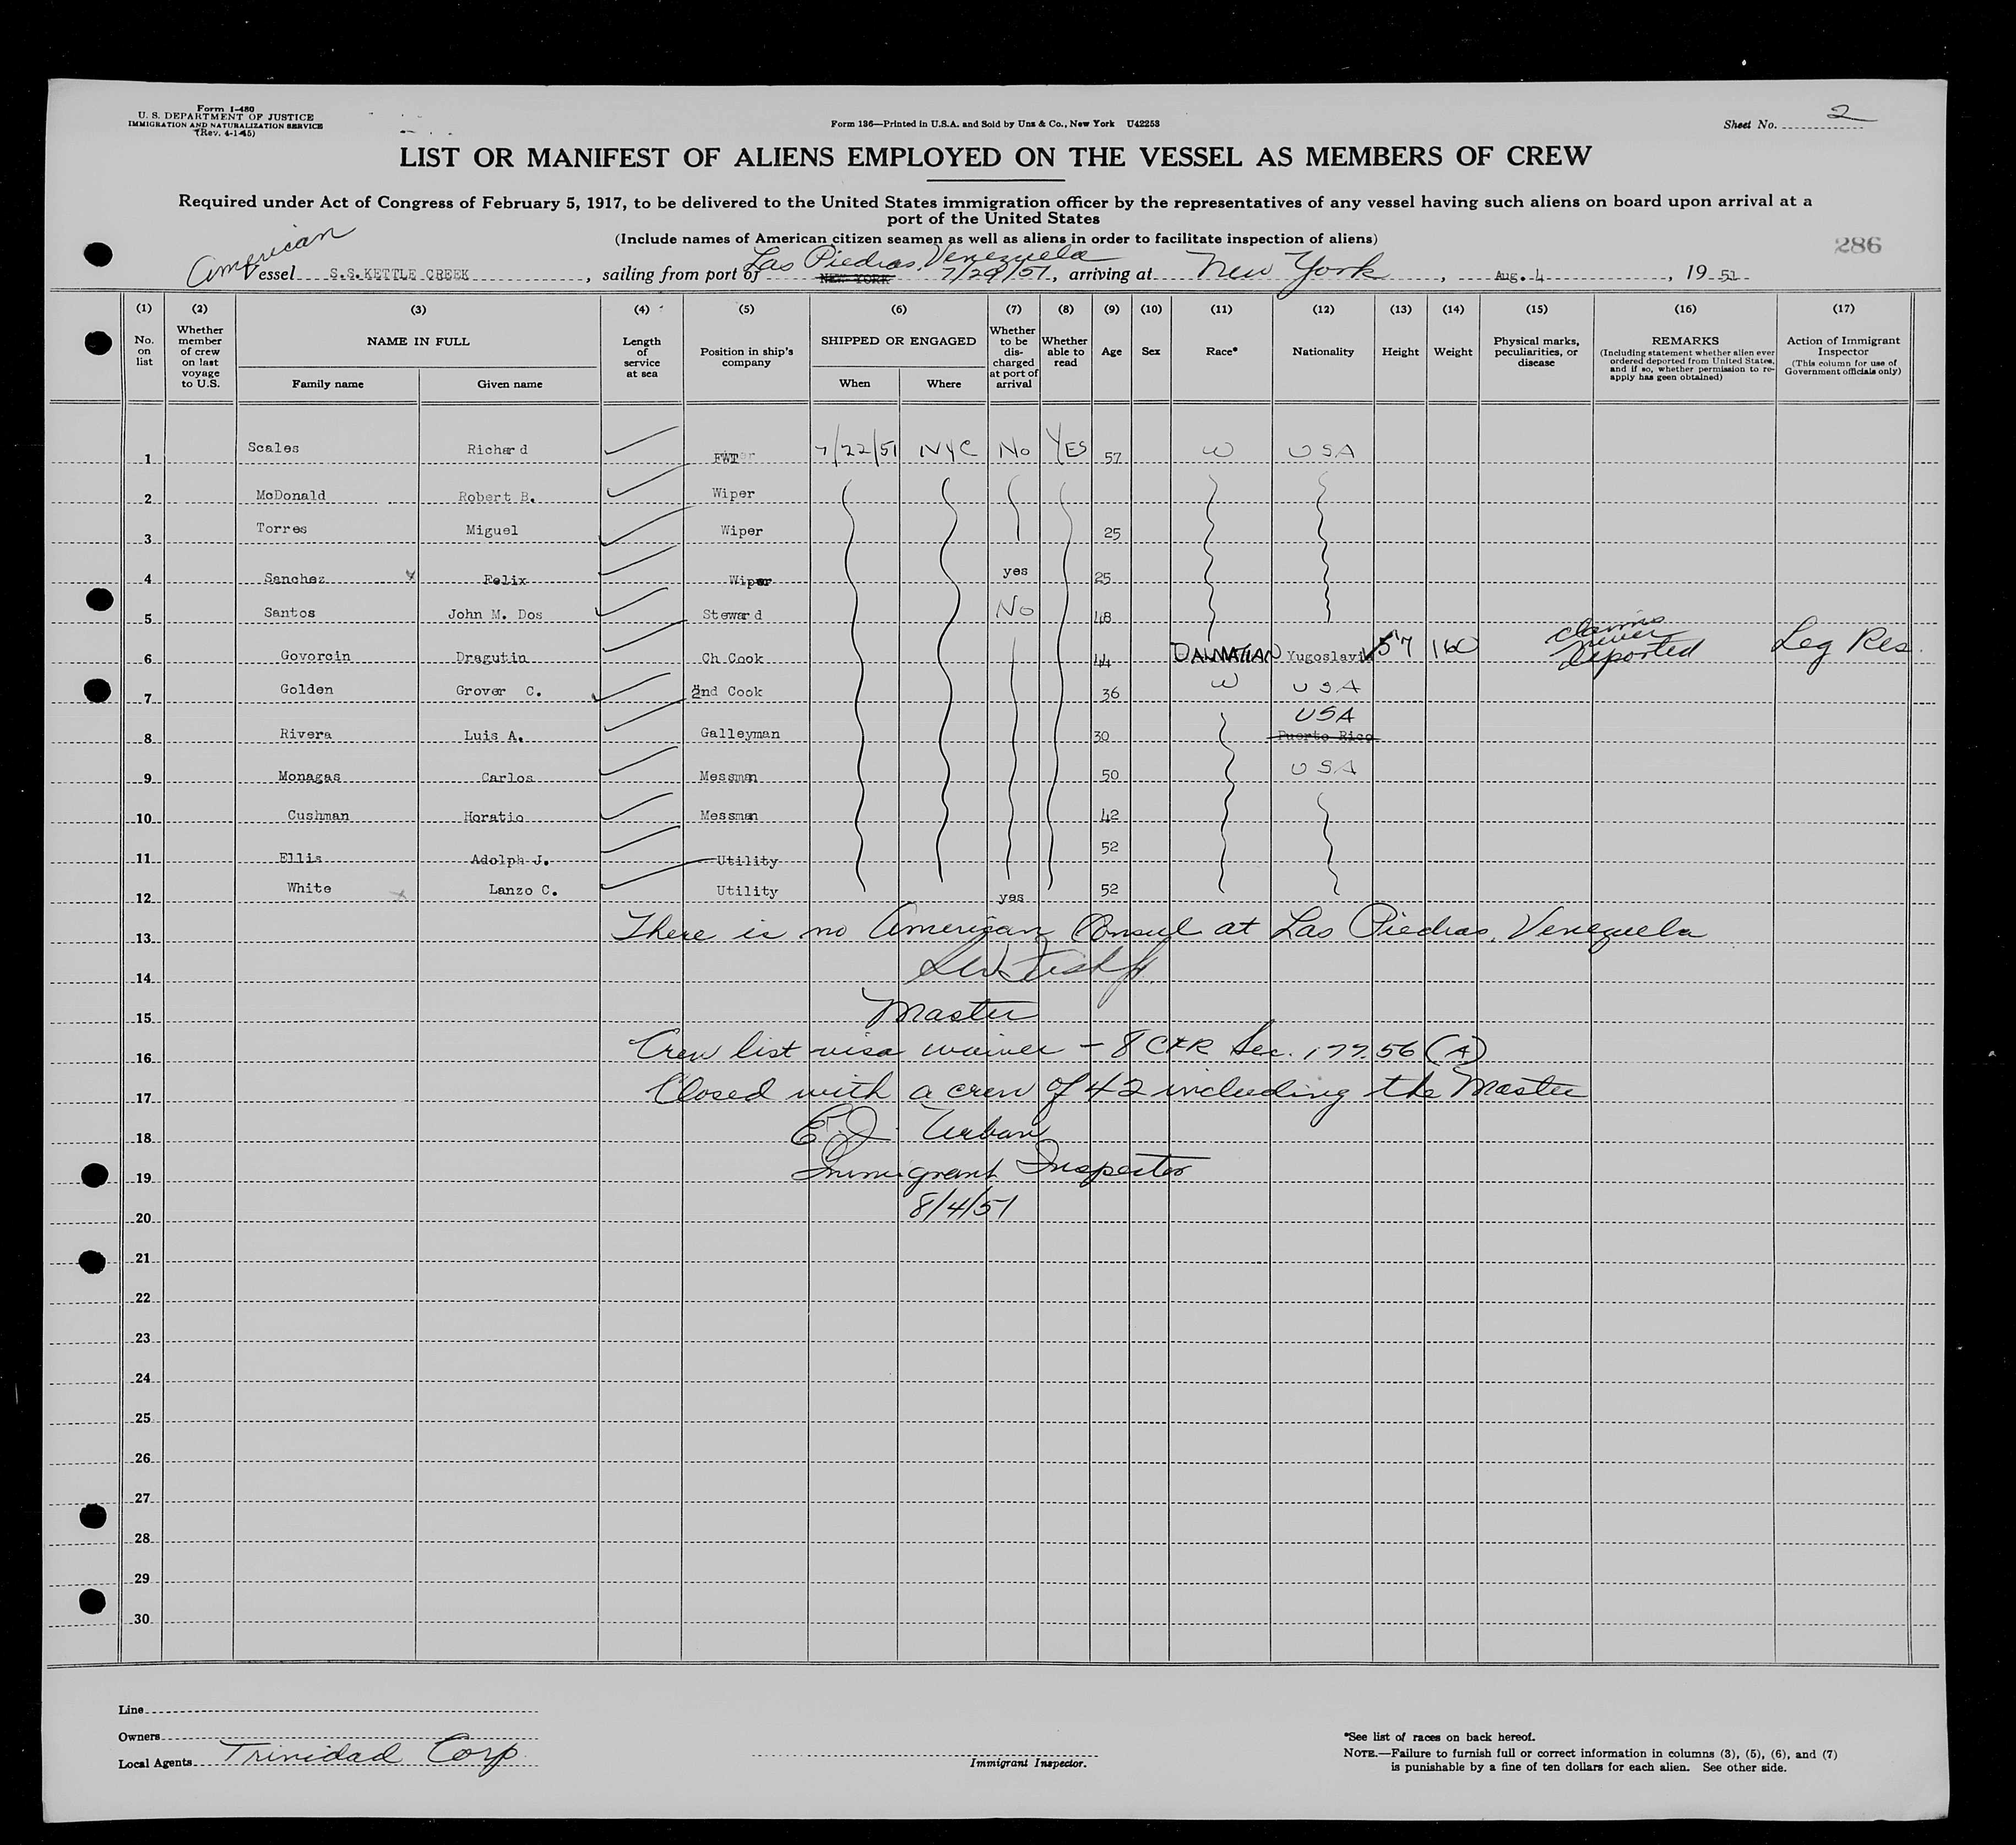 Form I-480
U. S. DEPARTMENT OF JUSTICE
IMMIGRATION AND NATURALIZATION SERVICE
(Rev. 4-1-45)
Form 136—Printed in U.S.A. and Sold by Unz & Co., New York U42253
Sheet No. 2
LIST OR MANIFEST OF ALIENS EMPLOYED ON THE VESSEL AS MEMBERS OF CREW
Required under Act of Congress of February 5, 1917, to be delivered to the United States immigration officer by the representatives of any vessel having such aliens on board upon arrival at a
port of the United States
(Include names of American citizen seamen as well as aliens in order to facilitate inspection of aliens)
286
American
Las Piedras, Venezuela
Vessel S.S.KETTLE CREEK, sailing from port of NEW YORK 7/29/51, arriving at New York, Aug. 4, 19 51
(1) (2) (3) (4) (5) (6) (7) (8) (9) (10) (11) (12) (13) (14) (15) (16) (17)
No. on list
Whether member of crew on last voyage to U.S.
NAME IN FULL
Family name Given name
Length of service at sea
Position in ship's company
SHIPPED OR ENGAGED
When Where
Whether to be discharged at port of arrival
Whether able to read
Age
Sex
Race*
Nationality
Height
Weight
Physical marks, peculiarities, or disease
REMARKS
(Including statement whether alien ever ordered deported from United States, and if so, whether permission to re-apply has geen obtained)
Action of Immigrant Inspector
(This column for use of Government officials only)
1 Scales Richard FWT 7/22/51 NYC No YES 57 W USA
2 McDonald Robert B. Wiper
3 Torres Miguel Wiper 25
4 Sanchez Felix Wiper yes 25
5 Santos John M. Dos Steward No 48
6 Govorcin Dragutin Ch Cook 44 DALMATIAN Yugoslavia 5'7 160 claims never deported Leg Res.
7 Golden Grover C. 2nd Cook 36 W USA
8 Rivera Luis A. Galleyman 30 USA Puerto Rico
9 Monagas Carlos Messman 50 USA
10 Cushman Horatio Messman 42
11 Ellis Adolph J. Utility 52
12 White Lanzo C. Utility yes 52
13 There is no American Consul at Las Piedras, Venezuela
14
15 Master
16 Crew list visa waiver - 8 CFR Sec. 177.56 (A)
17 Closed with a crew of 42 including the Master
18 E.J. Urban
19 Immigrant Inspector
20 8/4/51
21
22
23
24
25
26
27
28
29
30
Line
Owners
Local Agents Trinidad Corp.
Immigrant Inspector.
*See list of races on back hereof.
NOTE.—Failure to furnish full or correct information in columns (3), (5), (6), and (7)
is punishable by a fine of ten dollars for each alien. See other side.